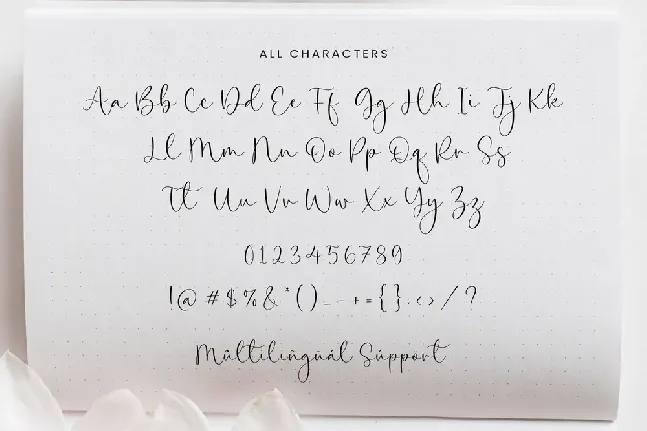 ALL CHARACTERS
Aa Bb Cc Dd Ee Ff Gg Hh Ii Jj Kk
Ll Mm Nn Oo Pp Qq Rr Ss
Tt Uu Vv Ww Xx Yy Zz
0123456789
!@#$%&*()_-+={}.<>/?
Mültilingüál Süppórt